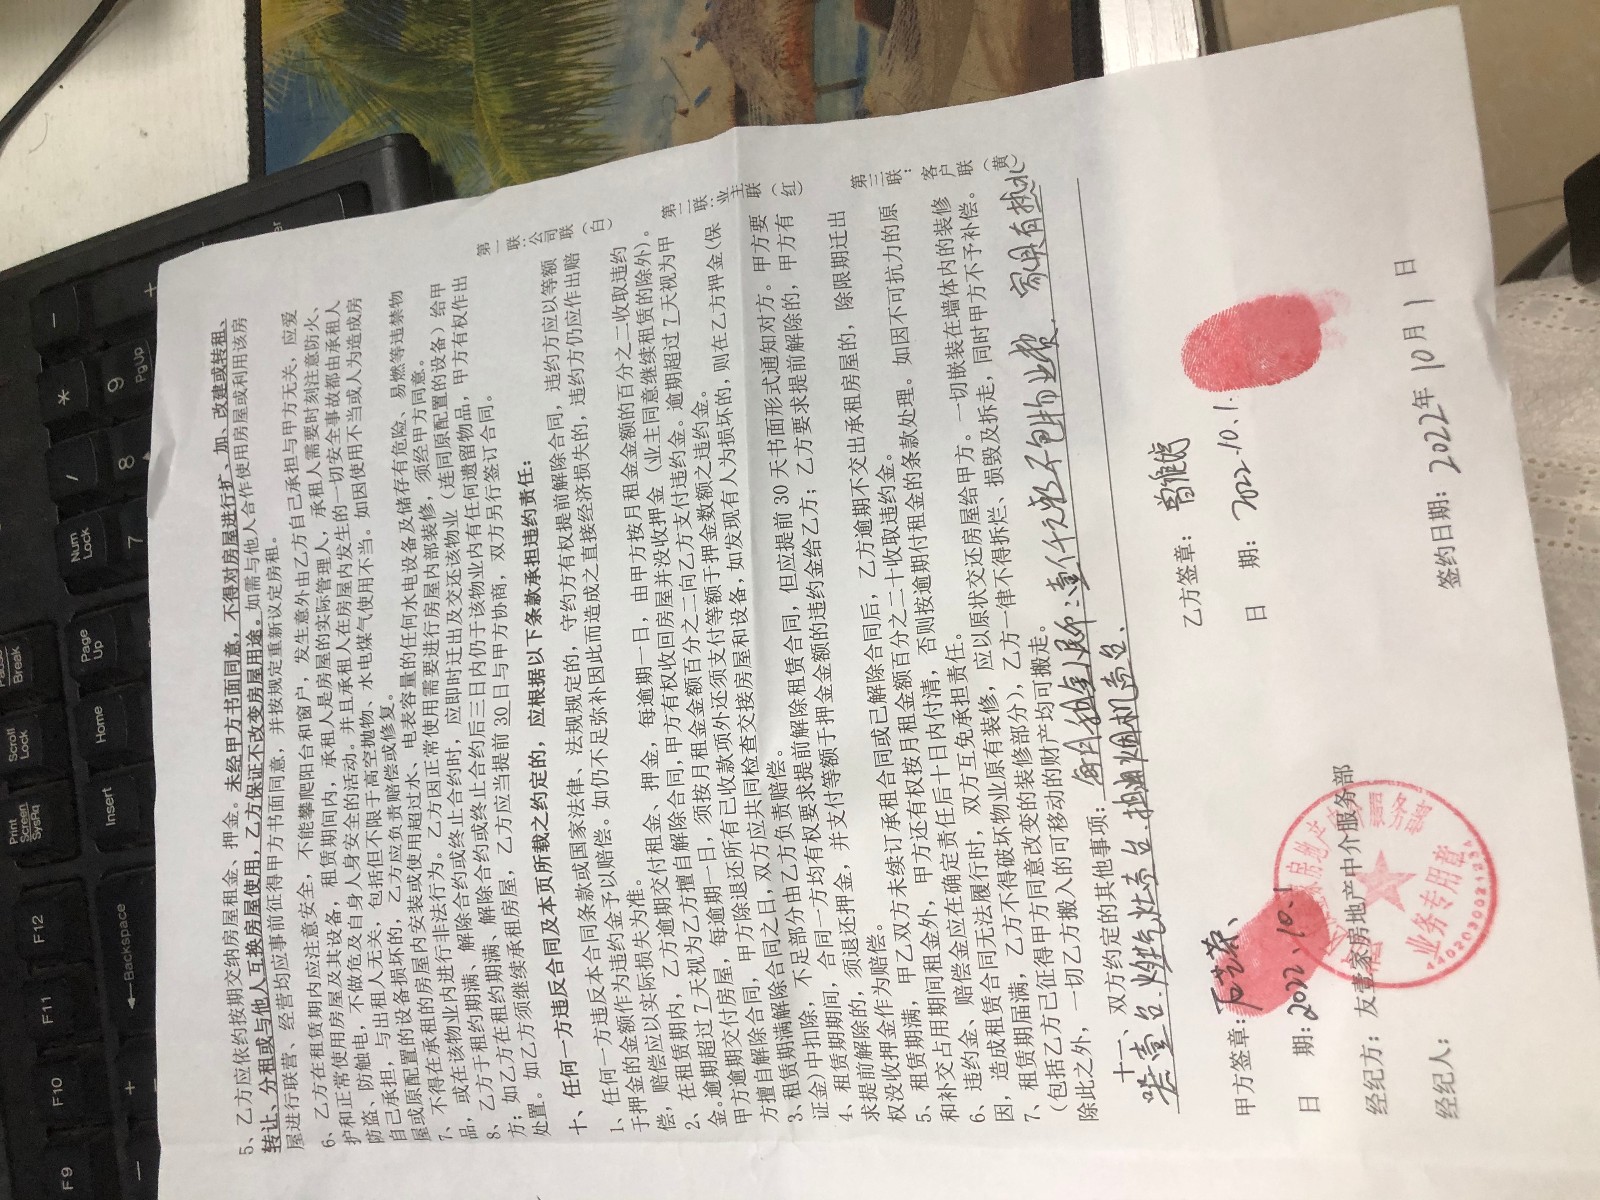 5、乙方应依约按期交纳房屋租金、押金。未经甲方书面同意，不得对房屋进行扩、加、改建或转租、
转让、分租或与他人互换房屋使用，乙方保证不改变房屋用途。如需与他人合作使用房屋或利用该房
屋进行联营、经营均应事前征得甲方书面同意，并按规定重新议定房租。
6、乙方在租赁期内应注意安全，不能攀爬阳台和窗户，发生意外由乙方自己承担与甲方无关，应爱
护和正常使用房屋及其设备，租赁期间内，承租人是房屋的实际管理人，承租人需要时刻注意防火、
防盗、防触电，不做危及自身人身安全的活动。并且承租人在房屋内发生的一切安全事故都由承租人
自己承担，与出租人无关，包括但不限于高空抛物、水电煤气使用不当。如因使用不当或人为造成房
屋或原配置的设备损坏的，乙方应负责赔偿或修复。
7、不得在承租的房屋内安装或使用超过水、电表容量的任何水电设备及储存有危险、易燃等违禁物
品，或在该物业内进行非法行为。乙方因正常使用需要进行房屋内部装修，须经甲方同意。
8、乙方于租约期满、解除合约或终止合约时，应即时迁出及交还该物业（连同原配置的设备）给甲
方；如乙方在租约期满、解除合约或终止合约后三日内仍于该物业内有任何遗留物品，甲方有权作出
处置。如乙方须继续承租房屋，乙方应当提前 30 日与甲方协商，双方另行签订合同。
十、任何一方违反合同及本页所载之约定的，应根据以下条款承担违约责任：
1、任何一方违反本合同条款或国家法律、法规规定的，守约方有权提前解除合同，违约方应以等额
于押金的金额作为违约金予以赔偿。如仍不足弥补因此而造成之直接经济损失的，违约方仍应作出赔
偿，赔偿应以实际损失为准。
2、在租赁期内，乙方逾期交付租金、押金，每逾期一日，由甲方按月租金金额的百分之二收取违约
金。逾期超过 7 天视为乙方擅自解除合同，甲方有权收回房屋并没收押金（业主同意继续租赁的除外）。
甲方逾期交付房屋，每逾期一日，须按月租金金额百分之二向乙方支付违约金。逾期超过 7 天视为甲
方擅自解除合同，甲方除退还所有已收款项外还须支付等额于押金数额之违约金。
3、租赁期满解除合同之日，双方应共同检查交接房屋和设备，如发现有人为损坏的，则在乙方押金（保
证金）中扣除，不足部分由乙方负责赔偿。
4、租赁期期间，合同一方均有权要求提前解除租赁合同，但应提前 30 天书面形式通知对方。甲方要
求提前解除的，须退还押金，并支付等额于押金金额的违约金给乙方；乙方要求提前解除的，甲方有
权没收押金作为赔偿。
5、租赁期满，甲乙双方未续订承租合同或已解除合同后，乙方逾期不交出承租房屋的，除限期迁出
和补交占用期间租金外，甲方还有权按月租金额百分之二十收取违约金。
6、违约金、赔偿金应在确定责任后十日内付清，否则按逾期付租金的条款处理。如因不可抗力的原
因，造成租赁合同无法履行时，双方互免承担责任。
7、租赁期届满，乙方不得破坏物业原有装修，应以原状交还房屋给甲方。一切嵌装在墙体内的装修
（包括乙方已征得甲方同意改变的装修部分），乙方一律不得拆烂、损毁及拆走，同时甲方不予补偿。
除此之外，一切乙方搬入的可移动的财产均可搬走。
十一、双方约定的其他事项：每月租金人民币：壹仟元整不包物业费、家具有热水
器壹台、燃气灶壹台、抽烟机壹台、
甲方签章：
乙方签章：
日 期：2022、10、1
日 期：2022.10.1.
经纪方：友壹家房地产中介服务部
业务专用章
经纪人：
签约日期：2022年 10月 1 日
第一联：公司联（白）
第二联：业主联（红）
第三联：客户联（黄）
Print Screen SysRq
Scroll Lock
Break
Insert
Home
Page Up
Num Lock
/
*
−
7
8
9
PgUp
+
F9
F10
F11
F12
+
←Backspace